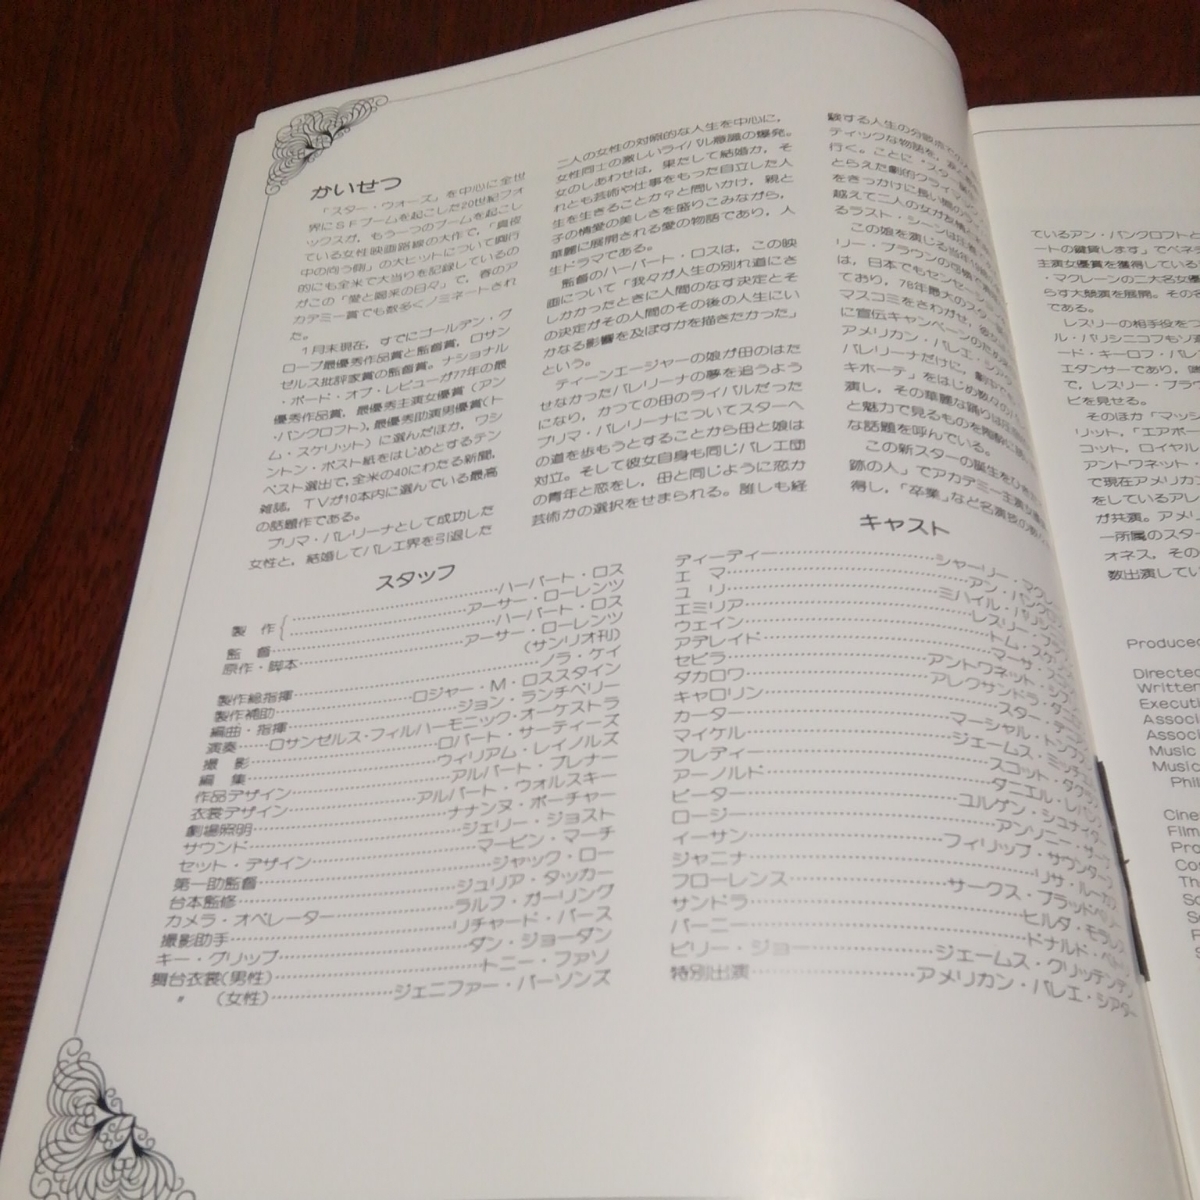 かいせつ
「スター・ウォーズ」を中心に全世
界にＳＦブームを起こした20世紀フォ
ックスが，もう一つのブームを起こし
ている女性映画路線の大作で，「真夜
中の向う側」の大ヒットについて興行
的にも全米で大当りを記録しているの
がこの「愛と喝采の日々」で，春のア
カデミー賞でも数多くノミネートされ
た。
１月末現在，すでにゴールデン・グ
ローブ最優秀作品賞と監督賞，ロサン
ゼルス批評家賞の監督賞。ナショナル
・ボード・オブ・レビューが77年の最
優秀作品賞，最優秀主演女優賞（アン
・バンクロフト），最優秀助演男優賞（ト
ム・スケリット）に選んだほか，ワシ
ントン・ポスト紙をはじめとするテン
ベスト選出で，全米の40にわたる新聞，
雑誌，ＴＶが10本内に選んでいる最高
の話題作である。
プリマ・バレリーナとして成功した
女性と，結婚してバレエ界を引退した
二人の女性の対照的な人生を中心に，
女性同士の激しいライバル意識の爆発。
女のしあわせは，果たして結婚か，そ
れとも芸術や仕事をもった自立した人
生を生きることか？と問いかけ，親と
子の情愛の美しさを盛りこみながら，
華麗に展開される愛の物語であり，人
生ドラマである。
監督のハーバート・ロスは，この映
画について「我々が人生の別れ道にさ
しかかったときに人間のなす決定とそ
の決定がその人間のその後の人生にい
かなる影響を及ぼすかを描きたかった」
という。
ティーンエージャーの娘が母のはた
せなかったバレリーナの夢を追うよう
になり，かつての母のライバルだった
プリマ・バレリーナについてスターへ
の道を歩もうとすることから母と娘は
対立。そして彼女自身も同じバレエ団
の青年と恋をし，母と同じように恋か
芸術かの選択をせまられる。誰しも経
験する人生の分岐点での
ティックな物語を，
行く。ことに“スター
とらえた劇的クライマックス
をきっかけに長い間の
越えて二人の女が友情
るラスト・シーンは圧巻
この娘を演じる当年
リー・ブラウンの可憐
は，日本でもセンセーショ
ており，78年最大のスター
マスコミをさわかせ，
に宣伝キャンペーンのため
アメリカン・バレエ・シアター
キホーテ」をはじめ数々の
バレリーナだけに，劇中
演し，その華麗な踊りは
と魅力で見るものを
な話題を呼んでいる。
この新スターの誕生を
跡の人」でアカデミー主演
得し，「卒業」など名演技の
スタッフ
製　作｛‥‥ハーバート・ロス
‥‥アーサー・ローレンツ
監　督‥‥ハーバート・ロス
原作・脚本‥‥アーサー・ローレンツ
（サンリオ刊）
製作総指揮‥‥ノラ・ケイ
製作補助‥‥ロジャー・Ｍ・ロススタイン
編曲・指揮‥‥ジョン・ランチベリー
演奏‥‥ロサンゼルス・フィルハーモニック・オーケストラ
撮　影‥‥ロバート・サーティーズ
編　集‥‥ウィリアム・レイノルズ
作品デザイン‥‥アルバート・ブレナー
衣裳デザイン‥‥アルバート・ウォルスキー
劇場照明‥‥ナナンヌ・ポーチャー
サウンド‥‥ジェリー・ジョスト
セット・デザイン‥‥マービン・マーチ
第一助監督‥‥ジャック・ロー
台本監修‥‥ジュリア・タッカー
カメラ・オペレーター‥‥ラルフ・ガーリング
撮影助手‥‥リチャード・バース
キー・グリップ‥‥ダン・ジョーダン
舞台衣裳（男性）‥‥トニー・ファソ
〃　（女性）‥‥ジェニファー・パーソンズ
キャスト
ディーディー‥‥シャーリー・マクレ
エ　マ‥‥アン・バンクロ
ユ　リ‥‥ミハイル・バリシニ
エミリア‥‥レスリー・ブラウ
ウェイン‥‥トム・スケリ
アデレイド‥‥マーサ・スコ
セビラ‥‥アントワネット・シブ
ダカロワ‥‥アレクサンドラ・ダニ
キャロリン‥‥スター・
カーター‥‥マーシャル・トンプソン
マイケル‥‥ジェームス・ミッチェル
フレディー‥‥スコット・ダグラス
アーノルド‥‥ダニエル・レバンス
ピーター‥‥ユルゲン・シュナイダー
ロージー‥‥アンソニー・
イーサン‥‥フィリップ・サウンダース
ジャニナ‥‥リサ・ルーカス
フローレンス‥‥サークス・ブラッドベリー
サンドラ‥‥ヒルダ・モラレス
バーニー‥‥ドナルド・
ビリー・ジョー‥‥ジェームス・クリッテンデン
特別出演‥‥アメリカン・バレエ・シアター
ているアン・バンクロフトと
ートの鍵貸します」でベネ
主演女優賞を獲得している
・マクレーンの二大名女優
らす大競演を展開。その名
である。
レスリーの相手役をつ
ル・バリシニコフもソ連
ード・キーロフ・バレ
エダンサーであり，
で，レスリー・ブラ
ビを見せる。
そのほか「マッシ
リット，「エアポー
コット，ロイヤル
アントワネット・
で現在アメリカン
をしているアレ
が共演。アメリ
一所属のスター
オネス，その
数出演してい
Produced
Directed
Written
Executi
Associ
Associ
Music
Music
Phil
Cine
Film
Pro
Co
Th
So
S